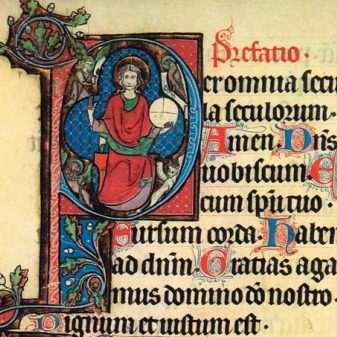 Prefatio·
Per omnia secu
la seculorum.
Amen. Dns
uobiscum. E
cum spu tuo·
Sursum corda. Haben
ad dnm. Gratias aga
mus domino do nostro·
Dignum et iustum est·